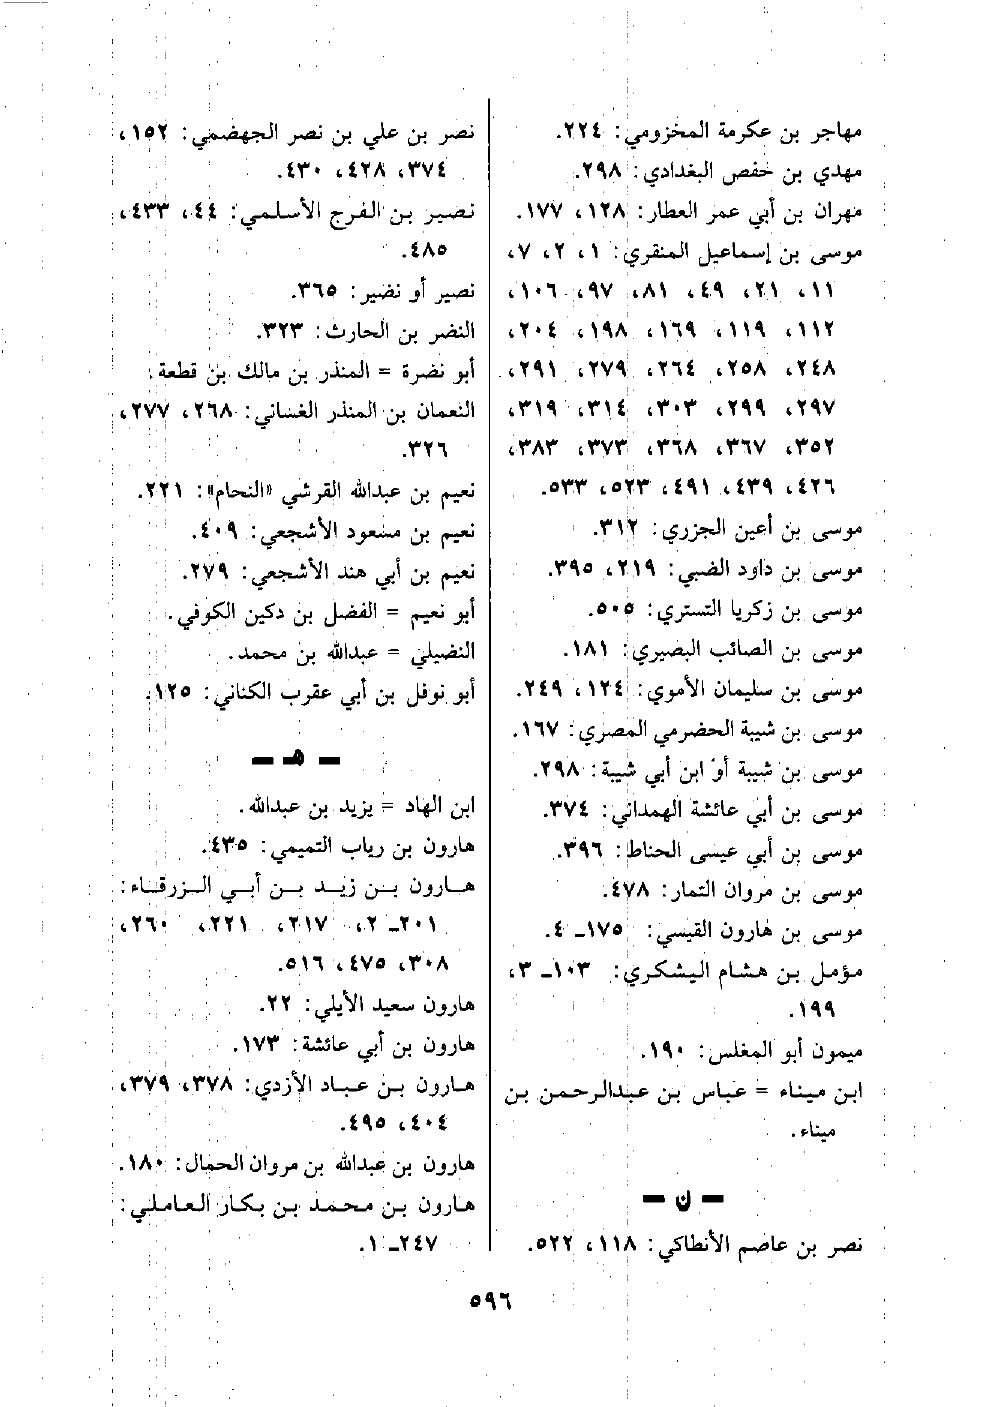 مهاجر بن عكرمة المخزومي: ٢٢٤.
مهدي بن حفص البغدادي: ٢٩٨.
مهران بن أبي عمر العطار: ١٢٨، ١٧٧.
موسى بن إسماعيل المنقري: ١، ٢، ٧،
١١، ٢١، ٤٩، ٨١، ٩٧، ١٠٦،
١١٢، ١١٩، ١٦٩، ١٩٨، ٢٠٤،
٢٤٨، ٢٥٨، ٢٦٤، ٢٧٩، ٢٩١،
٢٩٧، ٢٩٩، ٣٠٣، ٣١٤، ٣١٩،
٣٥٢، ٣٦٧، ٣٦٨، ٣٧٣، ٣٨٣،
٤٢٦، ٤٣٩، ٤٩١، ٥٢٣، ٥٣٣.
موسى بن أعين الجزري: ٣١٢.
موسى بن داود الضبي: ٢١٩، ٣٩٥.
موسى بن زكريا التستري: ٥٠٥.
موسى بن الصائب البصيري: ١٨١.
موسى بن سليمان الأموي: ١٢٤، ٢٤٩.
موسى بن شيبة الحضرمي المصري: ١٦٧.
موسى بن شيبة أو ابن أبي شيبة: ٢٩٨.
موسى بن أبي عائشة الهمداني: ٣٧٤.
موسى بن أبي عيسى الحناط: ٣٩٦.
موسى بن مروان التمار: ٤٧٨.
موسى بن هارون القيسي: ١٧٥ـ ٤.
مؤمل بن هشام اليشكري: ١٠٣ـ ٣،
١٩٩.
ميمون أبو المغلس: ١٩٠.
ابن ميناء = عباس بن عبدالرحمن بن
ميناء.
ـ ن ـ
نصر بن عاصم الأنطاكي: ١١٨، ٥٢٢.
نصر بن علي بن نصر الجهضمي: ١٥٢،
٣٧٤، ٤٢٨، ٤٣٠.
نصير بن الفرج الأسلمي: ٤٤، ٤٣٣،
٤٨٥.
نصير أو نضير: ٣٦٥.
النضر بن الحارث: ٣٢٣.
أبو نضرة = المنذر بن مالك بن قطعة.
النعمان بن المنذر الغساني: ٢٦٨، ٢٧٧،
٣٢٦.
نعيم بن عبدالله القرشي «النحام»: ٢٢١.
نعيم بن مسعود الأشجعي: ٤٠٩.
نعيم بن أبي هند الأشجعي: ٢٧٩.
أبو نعيم = الفضل بن دكين الكوفي.
النضيلي = عبدالله بن محمد.
أبو نوفل بن أبي عقرب الكناني: ١٢٥.
ـ هـ ـ
ابن الهاد = يزيد بن عبدالله.
هارون بن رياب التميمي: ٤٣٥.
هارون بن زيد بن أبي الزرقاء:
٢٠١ـ ٢، ٢١٧، ٢٢١، ٢٦٠،
٣٠٨، ٤٧٥، ٥١٦.
هارون سعيد الأيلي: ٢٢.
هارون بن أبي عائشة: ١٧٣.
هارون بن عباد الأزدي: ٣٧٨، ٣٧٩،
٤٠٤، ٤٩٥.
هارون بن عبدالله بن مروان الحمال: ١٨٠.
هارون بن محمد بن بكار العاملي:
٢٤٧ـ ١.
٥٩٦